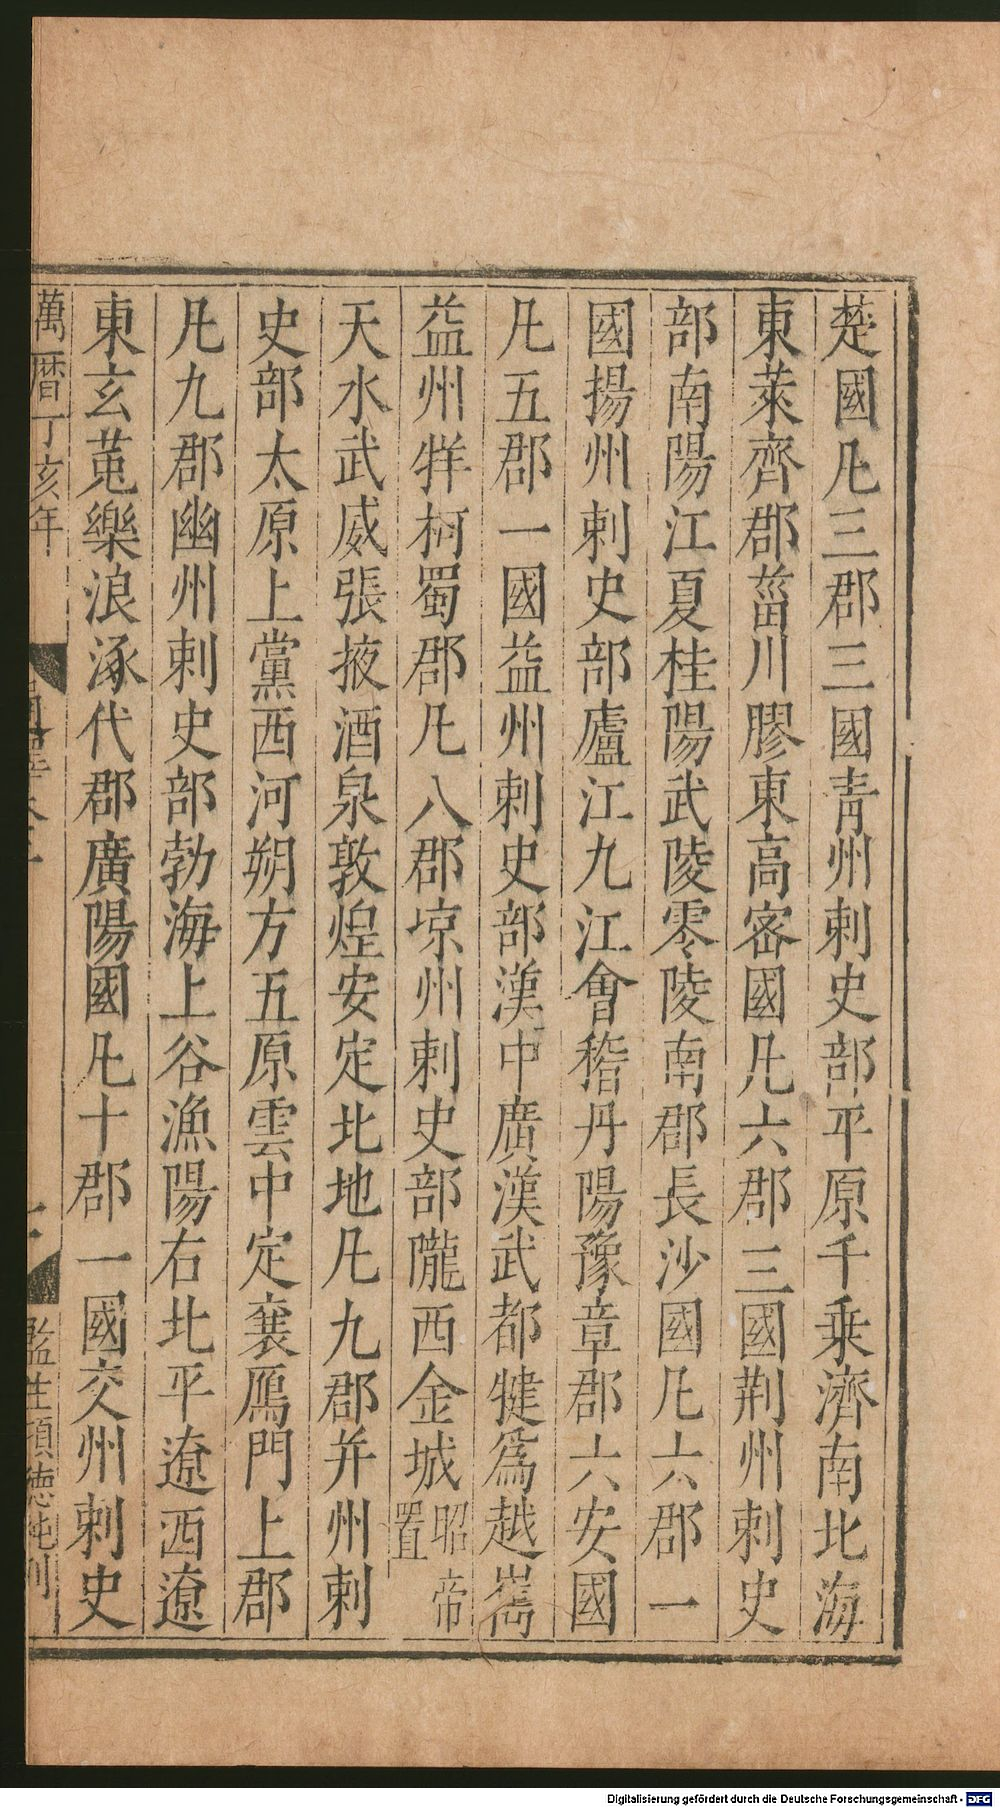 楚國凡三郡三國青州刺史部平原千乗濟南北海
東萊齊郡菑川膠東高密國凡六郡三國荆州刺史
部南陽江夏桂陽武陵零陵南郡長沙國凡六郡一
國揚州刺史部廬江九江會稽丹陽豫章郡六安國
凡五郡一國益州刺史部漢中廣漢武都犍為越嶲
益州牂柯蜀郡凡八郡凉州刺史部隴西金城昭帝置
天水武威張掖酒泉敦煌安定北地凡九郡并州刺
史部太原上黨西河朔方五原雲中定襄鴈門上郡
凡九郡幽州刺史部勃海上谷漁陽右北平遼西遼
東玄菟樂浪涿代郡廣陽國凡十郡一國交州刺史
萬曆丁亥年
監生項德純刊
Digitalisierung gefördert durch die Deutsche Forschungsgemeinschaft - DFG